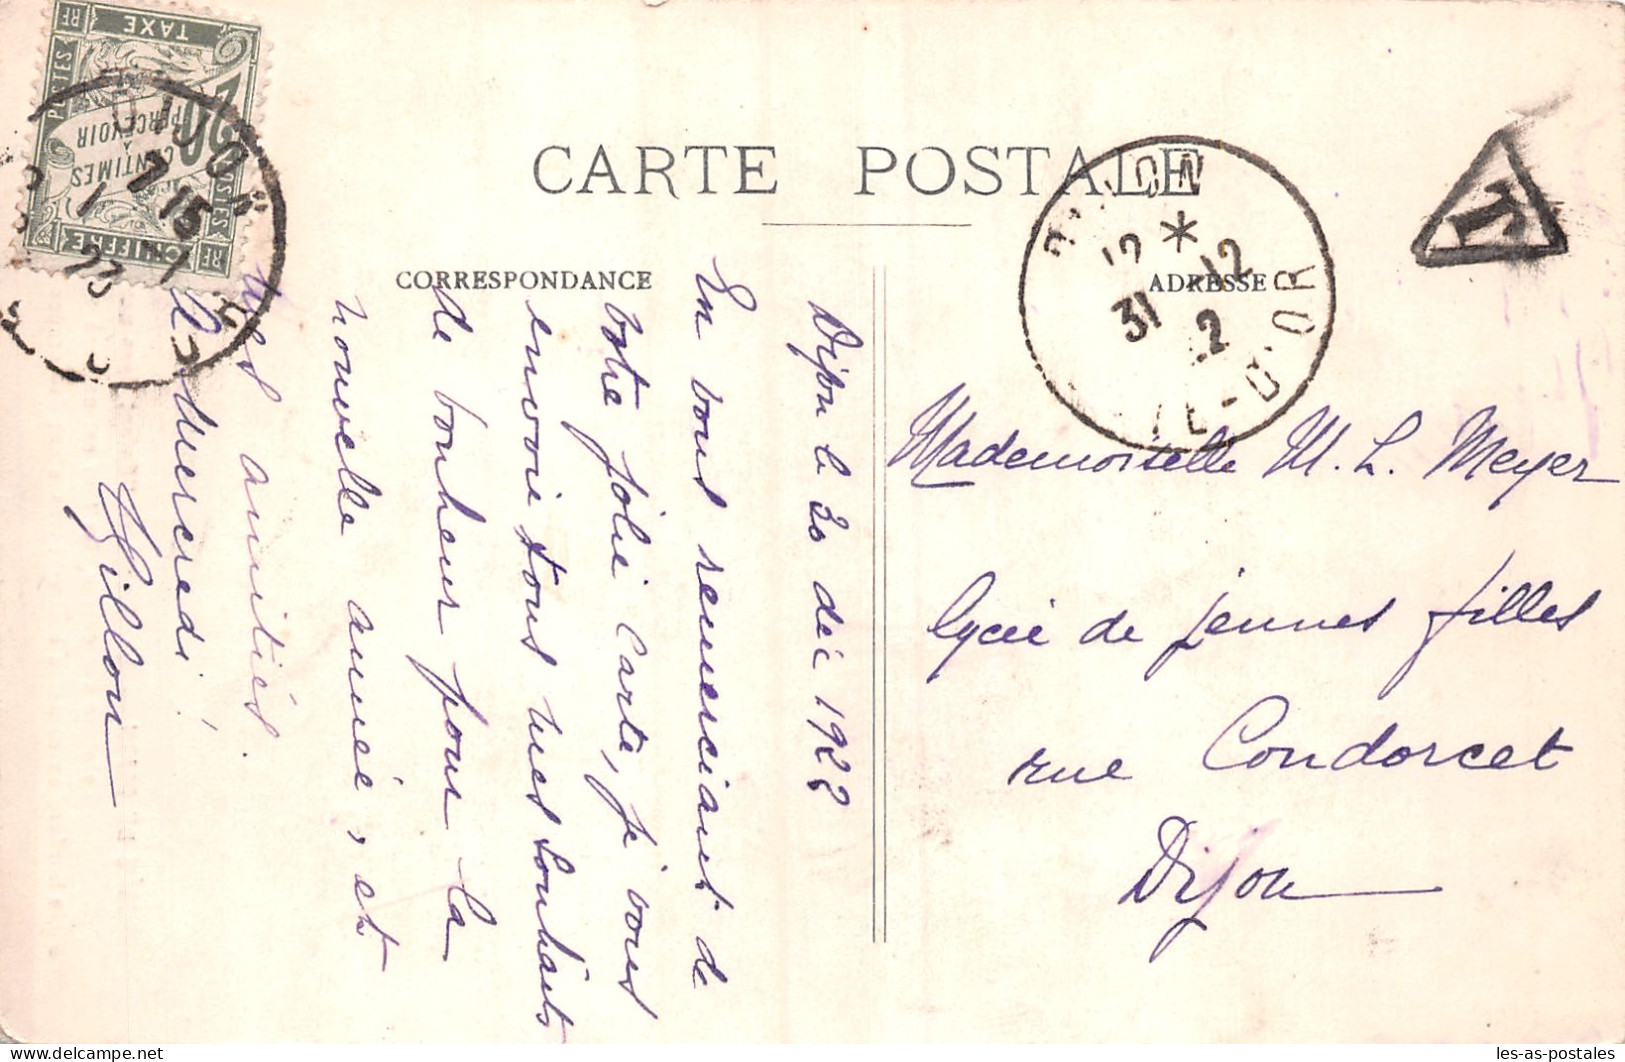 CARTE POSTALE
CORRESPONDANCE
ADRESSE
Dijon le 30 déc 1922
En vous remerciant de
votre jolie carte, je vous
envoie tous mes souhaits
de bonheur pour la
nouvelle année, et
mes amitiés.
Mercredi
Mademoiselle M. L. Meyer
lycée de jeunes filles
rue Condorcet
Dijon
POSTES
TAXE
RF
20
CENTIMES
À
PERCEVOIR
POSTES
RF
CHIFFRE
RF
DIJON
7 15
1
23
DIJON
12 * 12
31 2
CÔTE-D'OR
T
les-as-postales